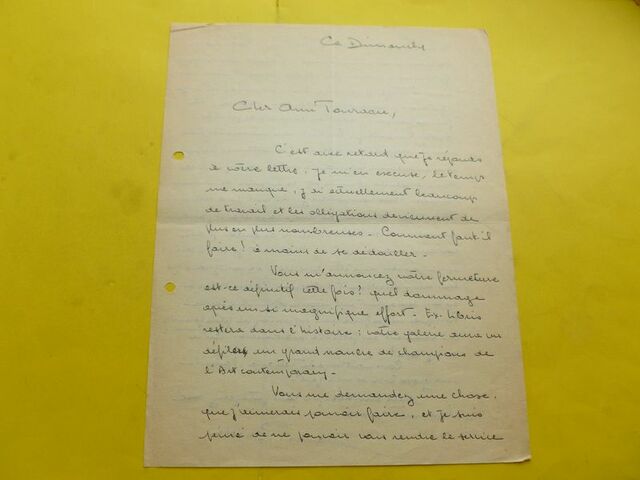 Ce Dimanche
Cher Ami
C'est avec retard que je réponds
à votre lettre, je m'en excuse, le temps
me manque, j'ai actuellement beaucoup
de travail et les obligations deviennent de
plus en plus nombreuses - Comment faut-il
faire! à moins de se dédoubler -
Vous m'annoncez votre fermeture
est-ce définitif cette fois? quel dommage
après un si magnifique effort - Ex-Libris
restera dans l'histoire : votre galerie aura vu
défiler un grand nombre de champions de
l'Art contemporain -
Vous me demandez une chose
que j'aimerais pouvoir faire, et je suis
peiné de ne pouvoir vous rendre le service